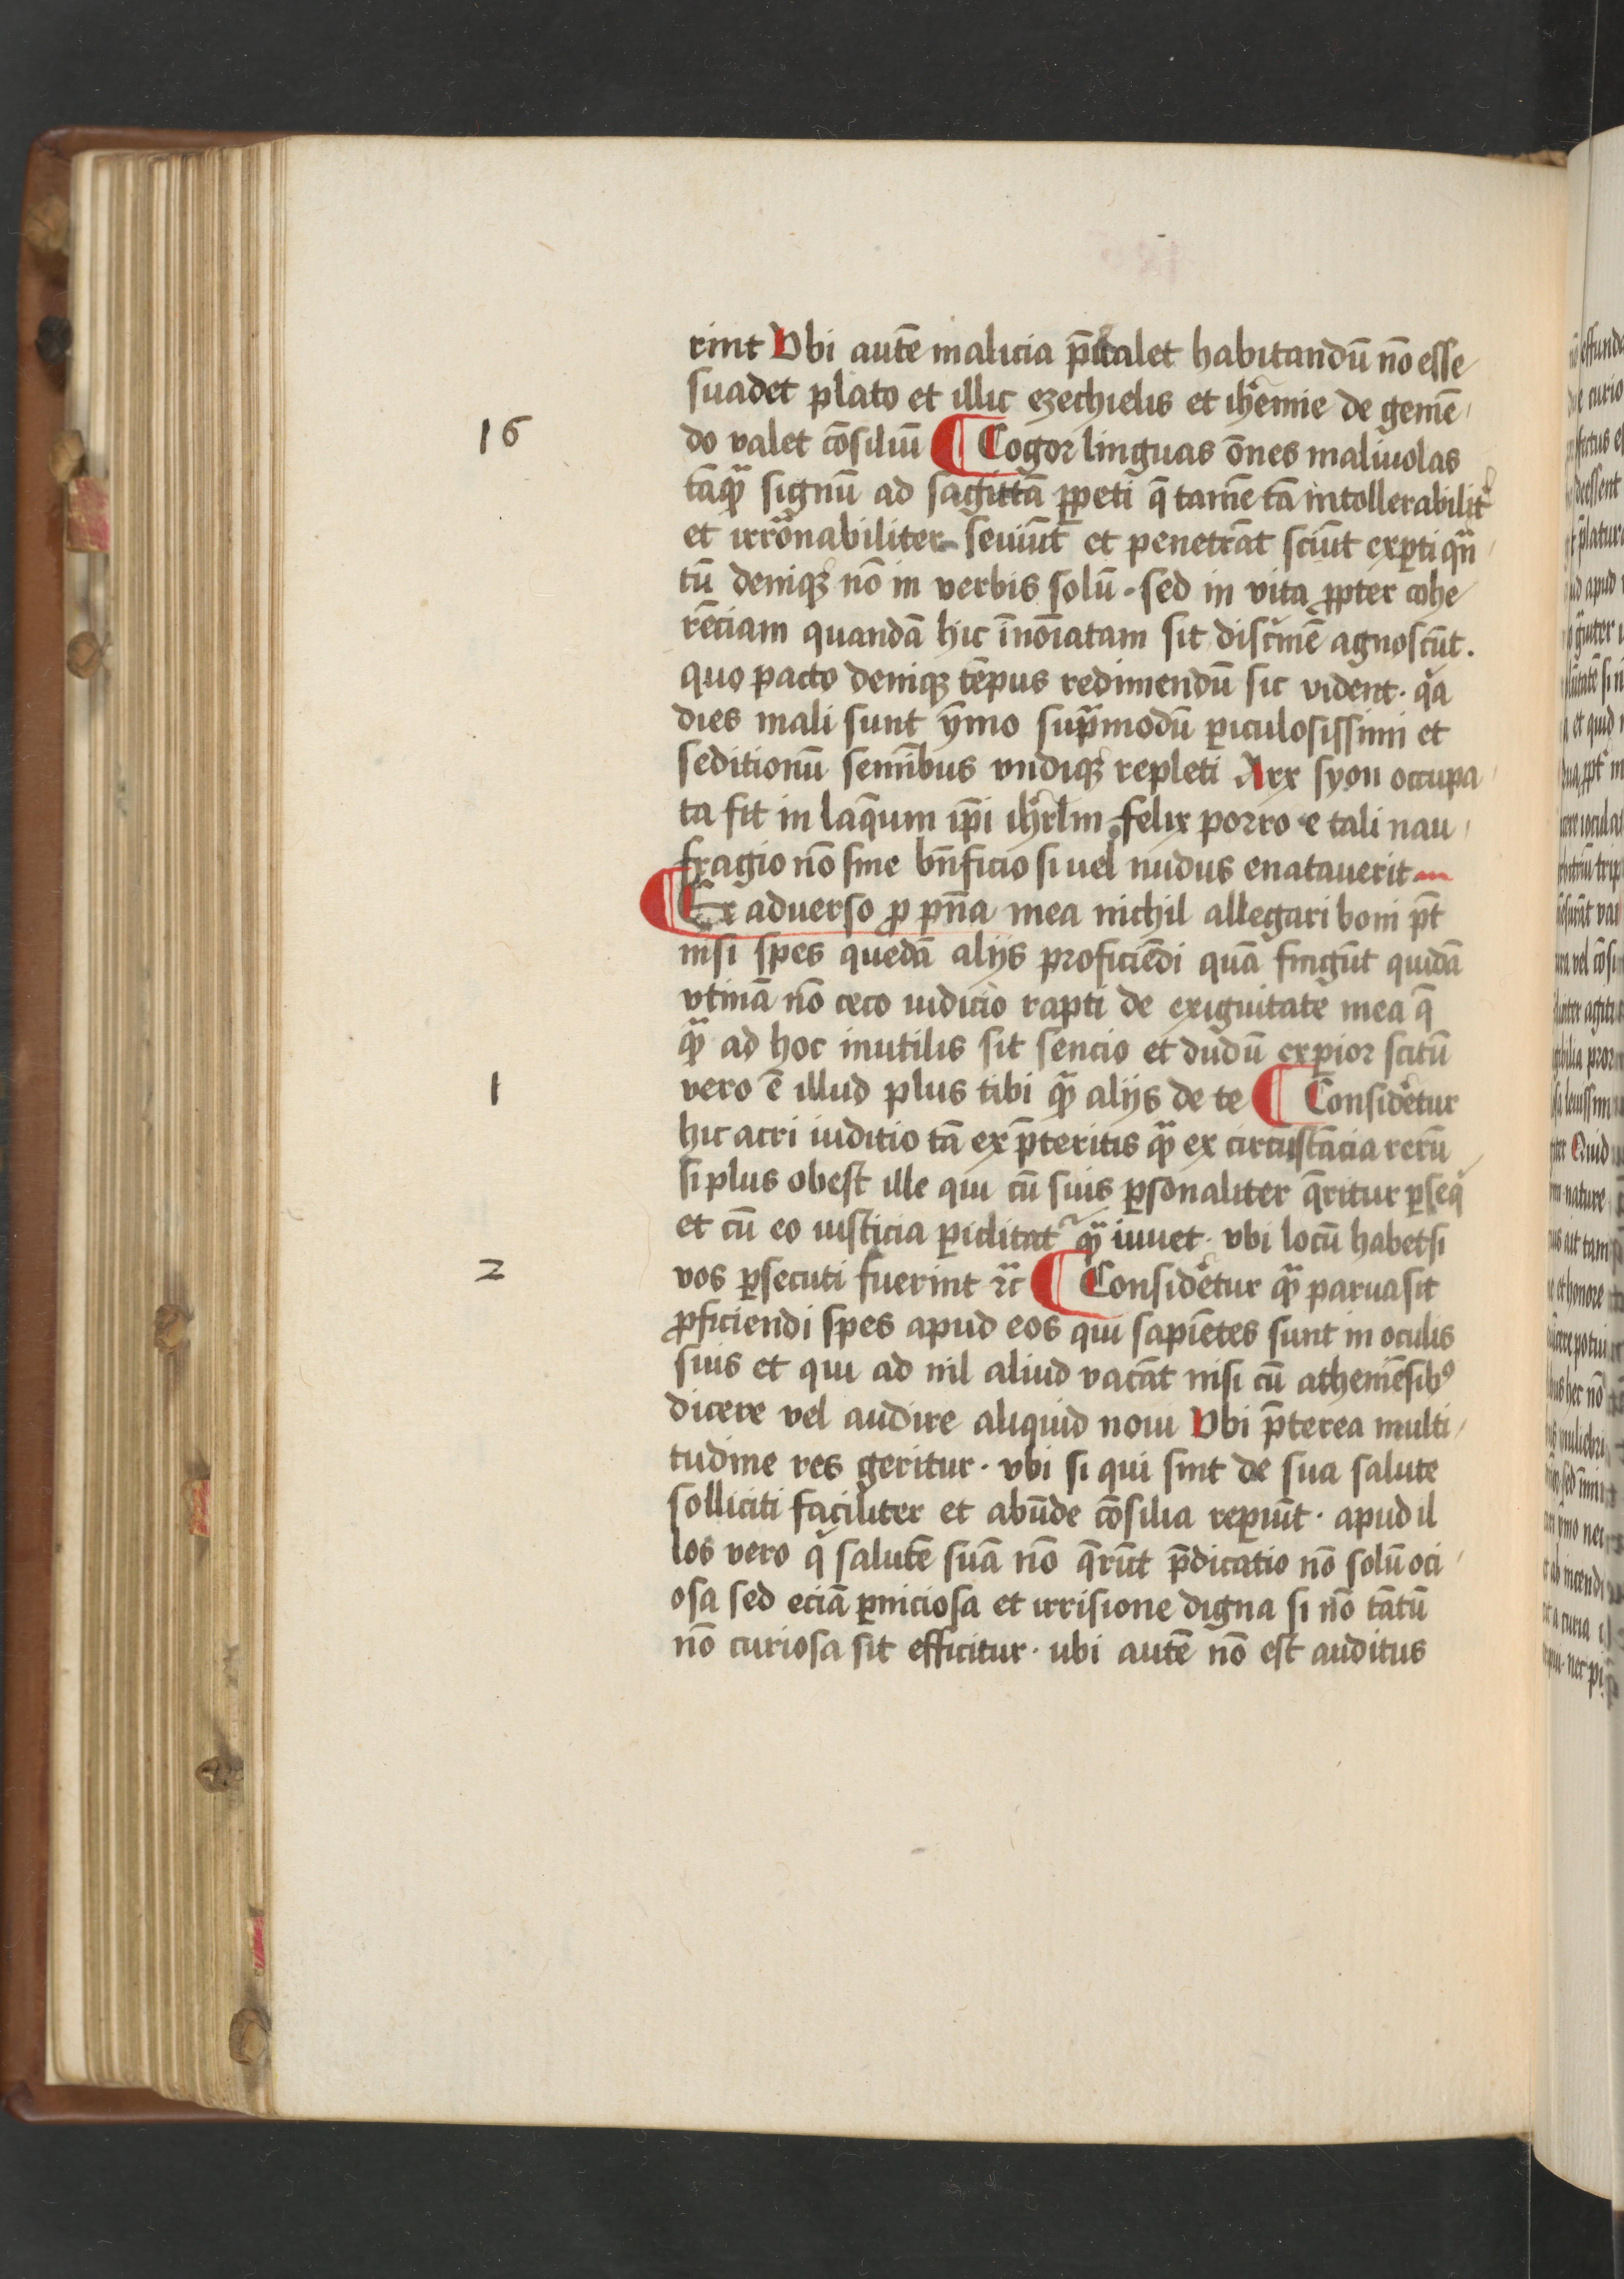 rint Vbi autē malicia p̄ualet habitandū nō esse
suadet plato et illic ezechielis et iheͬmie de gemē
16
do valet cōsiliū ¶ Cogor linguas ōnes maliuolas
tāqͣꝫ signū ad sagittā ꝑpeti q̄ tamē tā intollerabilitͬ
et irrōnabiliter seuiūt et penetrāt sciūt exꝑti qͣn
tū deniqꝫ nō in verbis solū · sed in vita ꝓpter cohe
rēciam quandā hic īnoīatam sit discͥmē agnoscūt .
quo pacto deniqꝫ tēpus redimendū sic vident · qͥa
dies mali sunt ȳmo supͣmodū ꝑiculosissimi et
seditionū semībus vndiqꝫ repleti Arx syon occupa
ta fit in laq̄um ip̄i ihrl̄m . felix porro e tali nau
fragio nō sine bn̄ficio si uel nudus enatauerit
¶ Ex aduerso ꝓ pn̄a mea nichil allegari boni pt̄
nisi spes quedā alijs proficiēdi quā fingūt quidā
vtinā nō ceco iudicio rapti de exiguitate mea q̄
qͣꝫ ad hoc inutilis sit sencio et dudū exꝑior scitū
1
vero ē illud plus tibi qͣꝫ alijs de te ¶ Considͤetur
hic acri iuditio tā ex p̄teritis qͣꝫ ex circūstācia rerū
si plus obest ille qui cū suis ꝑsonaliter q̄ritur ꝑseqͥ
et cū eo iusticia ꝑiclitatͬ qͣꝫ iuuet · vbi locū habet si
2
vos ꝑsecuti fuerint ⁊c̄ ¶ Considͤetur qͣꝫ parua sit
ꝓficiendi spes apud eos qui sapiētes sunt in oculis
suis et qui ad nil aliud vacāt nisi cū atheniēsibꝰ
dicere vel audire aliquid noui Vbi p̄terea multi
tudine res geritur · vbi si qui sint de sua salute
solliciti faciliter et abūde cōsilia reꝑiūt · apud il
los vero qͥ salutē suā nō q̄rūt p̄dicatio nō solū oci
osa sed eciā ꝑniciosa et irrisione digna si nō tātū
nō curiosa sit efficitur · ubi autē nō est auditus